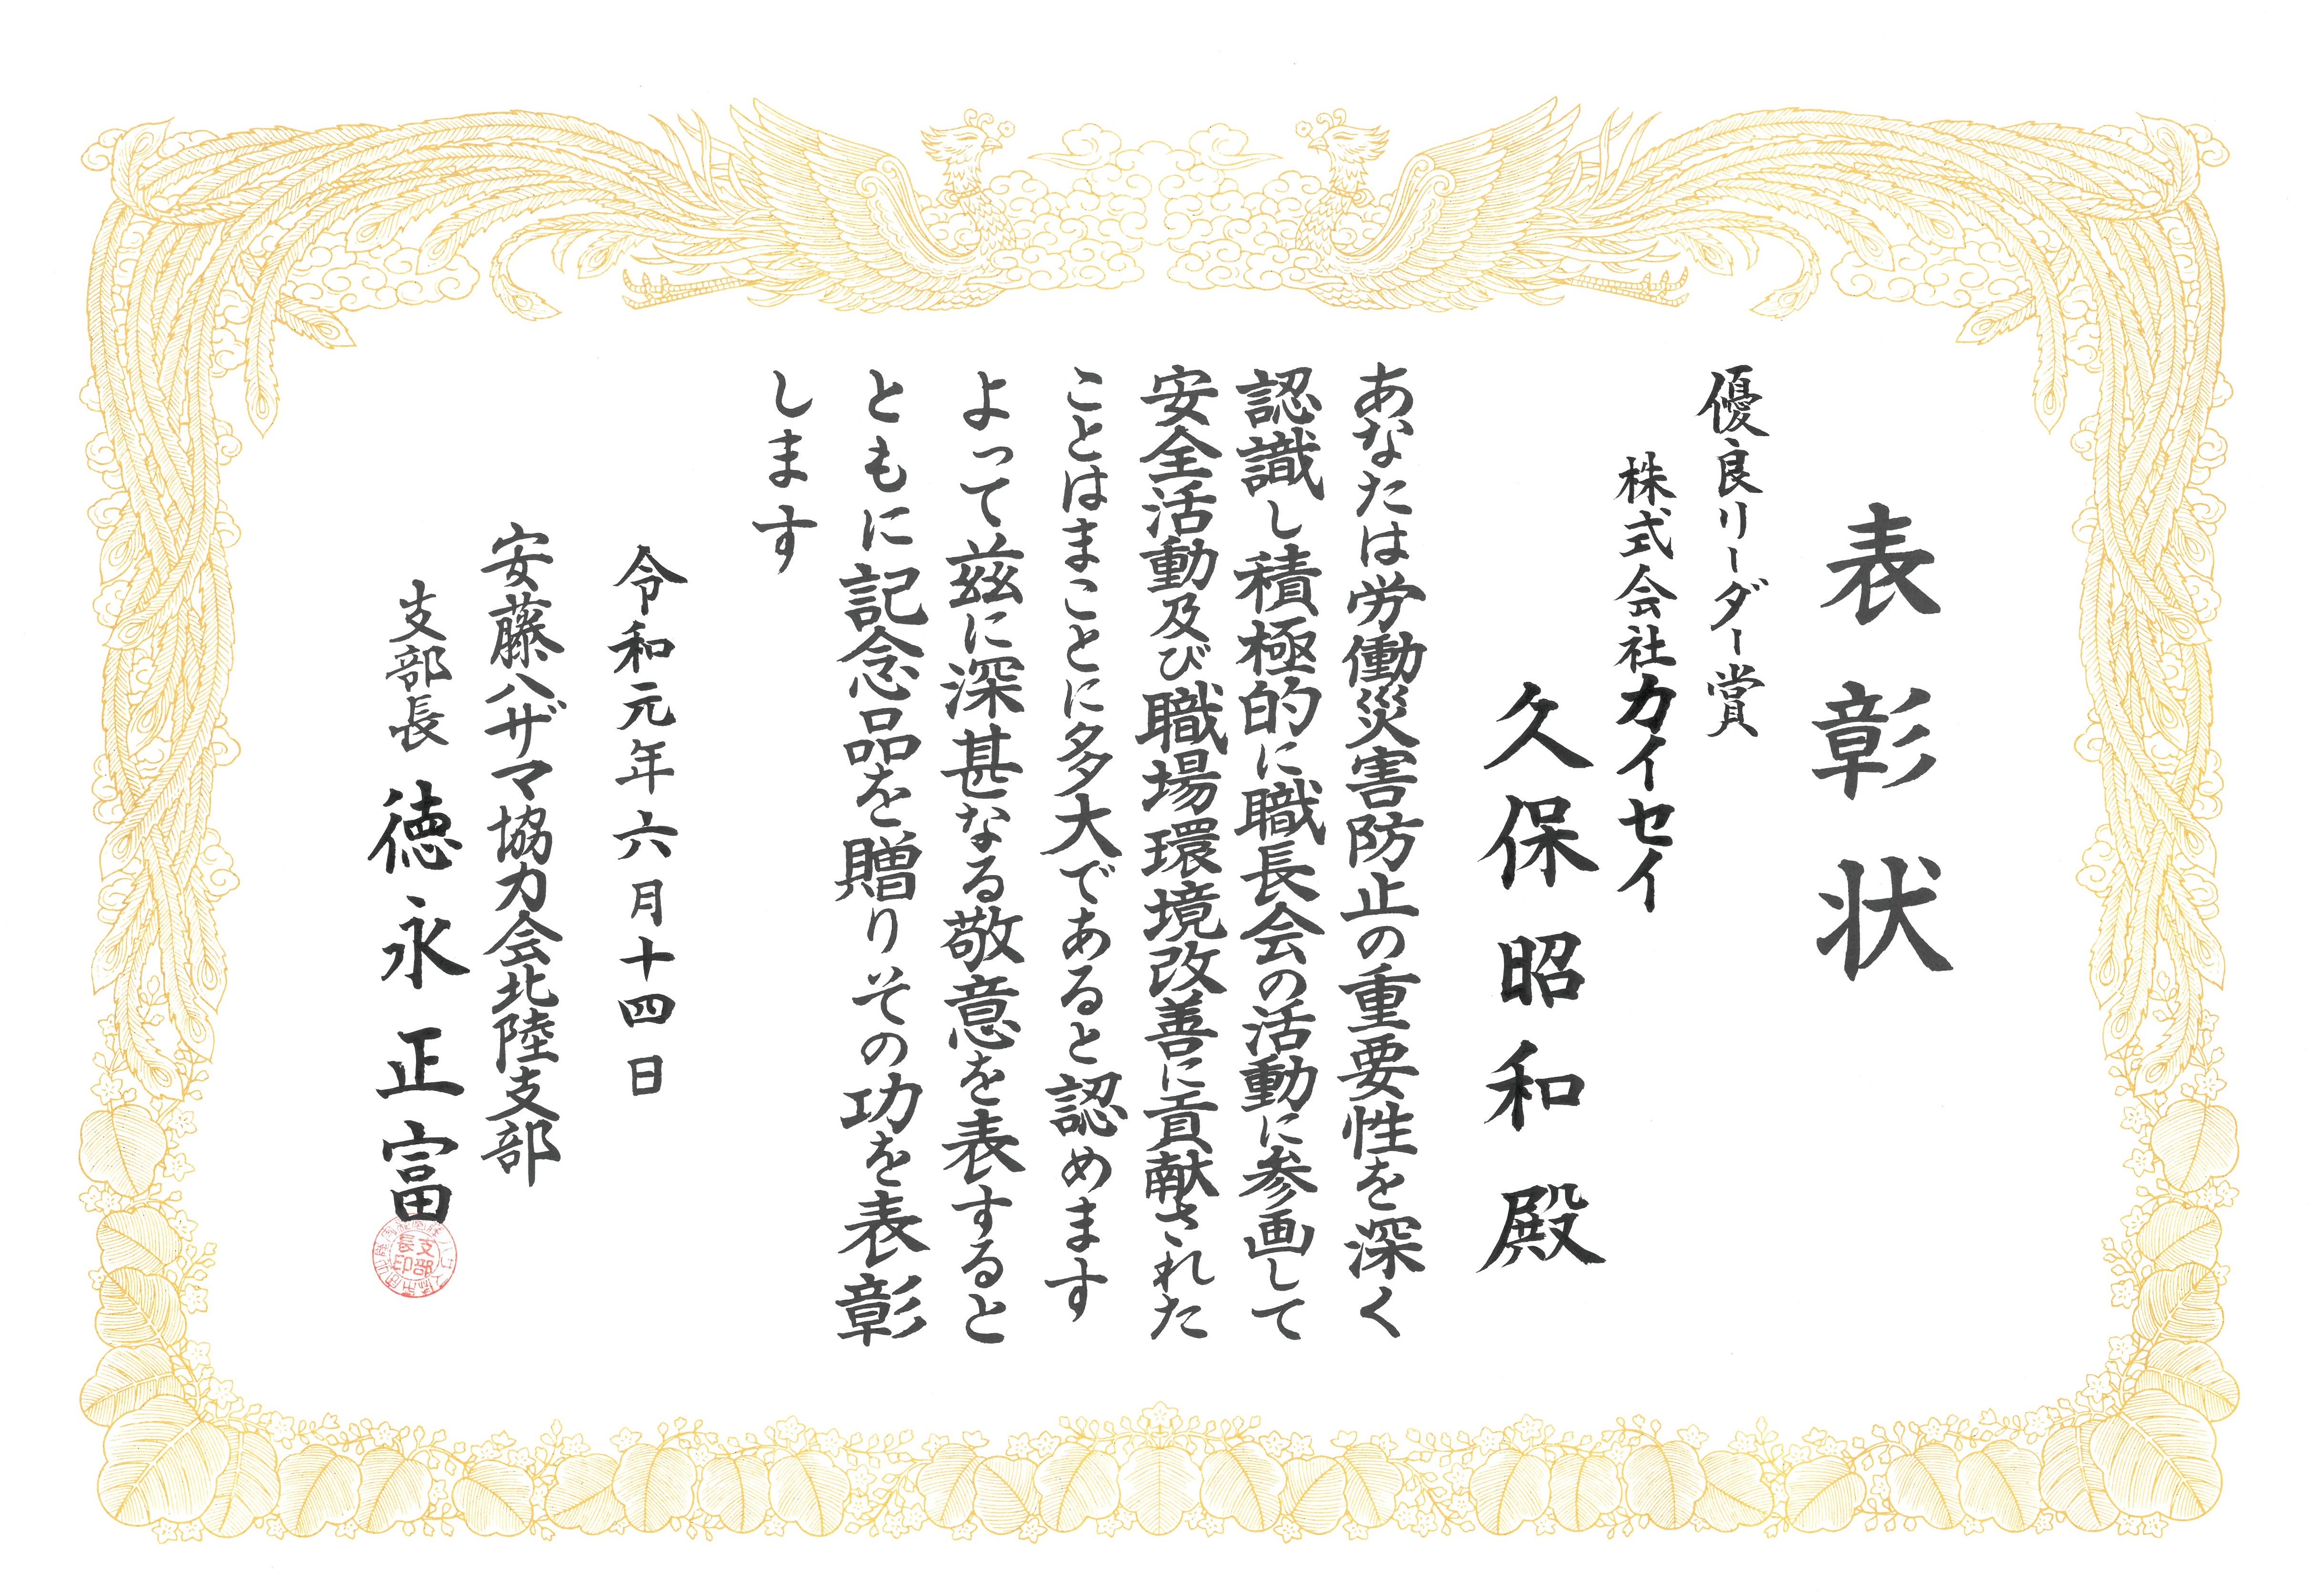 表彰状
優良リーダー賞
株式会社カイセイ
久保昭和殿
あなたは労働災害防止の重要性を深く
認識し積極的に職長会の活動に参画して
安全活動及び職場環境改善に貢献された
ことはまことに多大であると認めます
よって茲に深甚なる敬意を表すると
ともに記念品を贈りその功を表彰
します
令和元年六月十四日
安藤ハザマ協力会北陸支部
支部長 徳永正富
支部長印